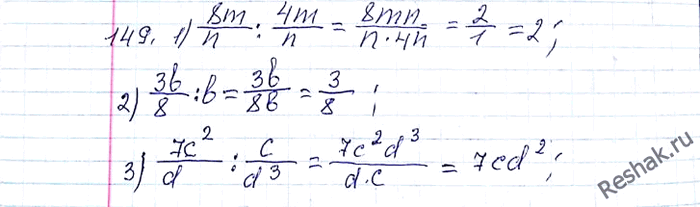 149. 1) 8m/n : 4m/n = 8mn/n·4n = 2/1 = 2;
2) 3b/8 : b = 3b/8b = 3/8 ;
3) 7c²/d : c/d³ = 7c²d³/d·c = 7cd²;
Reshak.ru